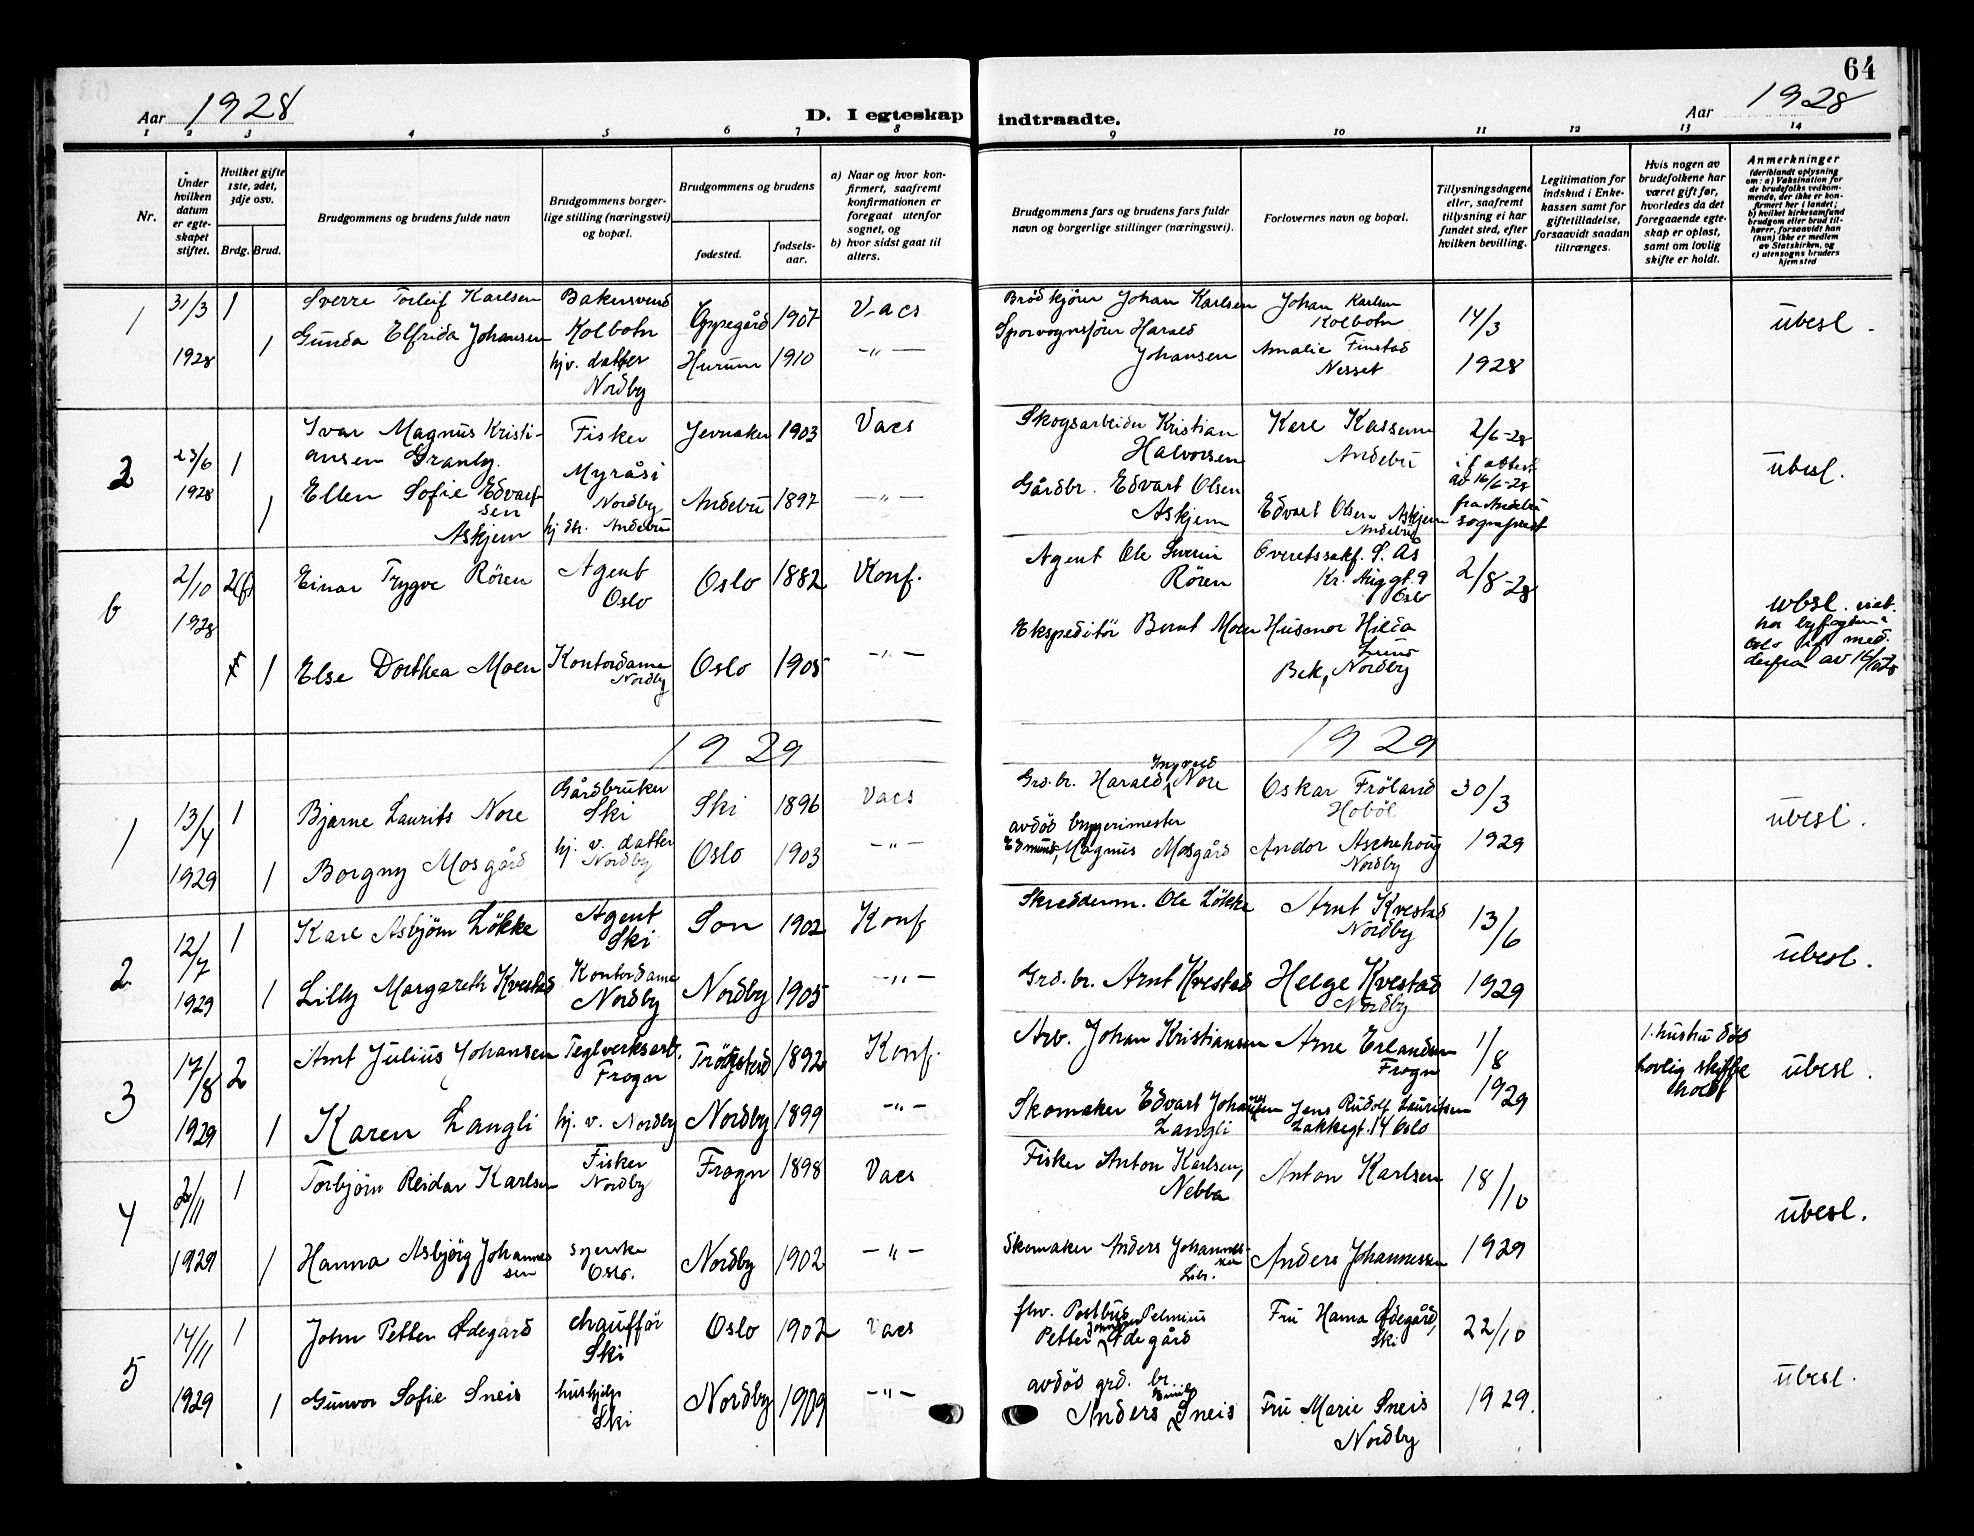 64
Aar 1928
D. I egteskap indtraadte.
Aar 1928
1 2 3 4 5 6 7 8 9 10 11 12 13 14
Nr.
Under hvilken datum er egteskapet stiftet.
Hvilket gifte 1ste, 2det, 3dje osv.
Brdg. Brud.
Brudgommens og brudens fulde navn
Brudgommens borgerlige stilling (næringsvei) og bopæl.
Brudgommens og brudens
fødested.
fødselsaar.
a) Naar og hvor konfirmert, saafremt konfirmationen er foregaat utenfor sognet, og
b) hvor sidst gaat til alters.
Brudgommens fars og brudens fars fulde navn og borgerlige stillinger (næringsvei).
Forlovernes navn og bopæl.
Tillysningsdagene eller, saafremt tillysning ei har fundet sted, efter hvilken bevilling.
Legitimation for indskud i Enkekassen samt for giftetilladelse, forsaavidt saadan tiltrænges.
Hvis nogen av brudefolkene har været gift før, hvorledes da det foregaaende egteskap er opløst, samt om lovlig skifte er holdt.
Anmerkninger (deriblandt oplysning om: a) Vaksination for de brudefolks vedkommende, der ikke er konfirmert her i landet; b) hvilket kirkesamfund brudgom eller brud tilhører, forsaavidt han (hun) ikke er medlem av Statskirken, og c) utensogns bruders hjemsted
1 31/3 1928 1
Sverre Torleif Karlsen
Bakersvend Kolbotn
Oppegård 1907 Vacs
Brödkjörer Johan Karlsen
Johan Karlsen Kolbotn
14/3 1928
ubesl.
1 Gunda Elfrida Johansen
hjv. datter Nordby
Hurum 1910 -"-
Sporvognsförer Harald Johansen
Amalie Finstad Nesset
2 23/6 1928 1
Ivar Magnus Kristiansen Granly
Fisker Myråsi Nordby
Jevnaker 1903 Vacs
Skogsarbeider Kristian Halvorsen
Andebu
2/6-28
av 16/6-28 fra Andebu
ubesl.
1 Ellen Sofie Edvardsen Askjem
hj. dt. Andebu
Andebu 1897 -"-
Gårdbr. Edvart Olsen Askjem
Edvart Olsen Askjem Andebu
6 2/10 1928 2(f)
Einar Trygve Rören
Agent Oslo
Oslo 1882 Konf.
Agent Ole Severin Rören
Overetssakf. S. Ås Kr. Aug gt. 9 Oslo
2/8-28
ubesl. viet hos byfogden i Oslo
1 Else Dorthea Moen
Kontordame Nordby
Oslo 1905 -"-
Ekspeditör Bernt Moen
Husmor Hilda Lund Bek, Nordby
1929
1929
1 13/4 1929 1
Bjarne Laurits Nore
Gårdbruker Ski
Ski 1896 Vacs
Grd. br. Harald Ingvald Nore
Oskar Fröland Hoböl
30/3 1929
ubesl.
1 Borgny Mosgård
hj. v. datter Nordby
Oslo 1903 -"-
avdöd byggerimester Edmund Magnus Mosgård
Andor Aschehoug Nordby
2 12/7 1929 1
Karl Asbjörn Lökke
Agent Ski
Son 1902 Konf
Skredderm. Ole Lökke
Arnt Kvestad Nordby
13/6 1929
ubesl.
1 Lilly Margareth Kvestad
Kontordame Nordby
Nordby 1905 -"-
Grd. br. Arnt Kvestad
Helge Kvestad Nordby
3 17/8 1929 2
Arnt Julius Johansen
Teglverksarb. Frogn
Trögstad 1892 Konf.
Arb. Johan Kristiansen
Arne Erlandsen Frogn
1/8 1929
1. hustru död lovlig skifte holdt
ubesl.
1 Karen Langli
hj. v. Nordby
Nordby 1899 -"-
Skomaker Edvart Johannesen Langli
Jens Rudolf Lauritsen Lakkegt. 14 Oslo
4 2/11 1929 1
Torbjörn Reidar Karlsen
Fisker Nordby
Frogn 1898 Vacs
Fisker Anton Karlsen, Nebba
Anton Karlsen
18/10 1929
ubesl.
1 Hanna Asbjörg Johannessen
syerske Oslo.
Nordby 1902 -"-
Skomaker Anders Johannessen
Anders Johannessen
5 14/11 1929 1
John Petter Ödegård
chauffför Ski
Oslo 1902 Vacs
fhv. Postbud Petter Pelmius Ödegård
Fru Hanna Ödegård, Ski
22/10 1929.
ubesl.
1 Gunvor Sofie Sneis
hushjelp Ski
Nordby 1909 -"-
avdöd grd. br. Anders Emil Sneis
Fru Marie Sneis Nordby